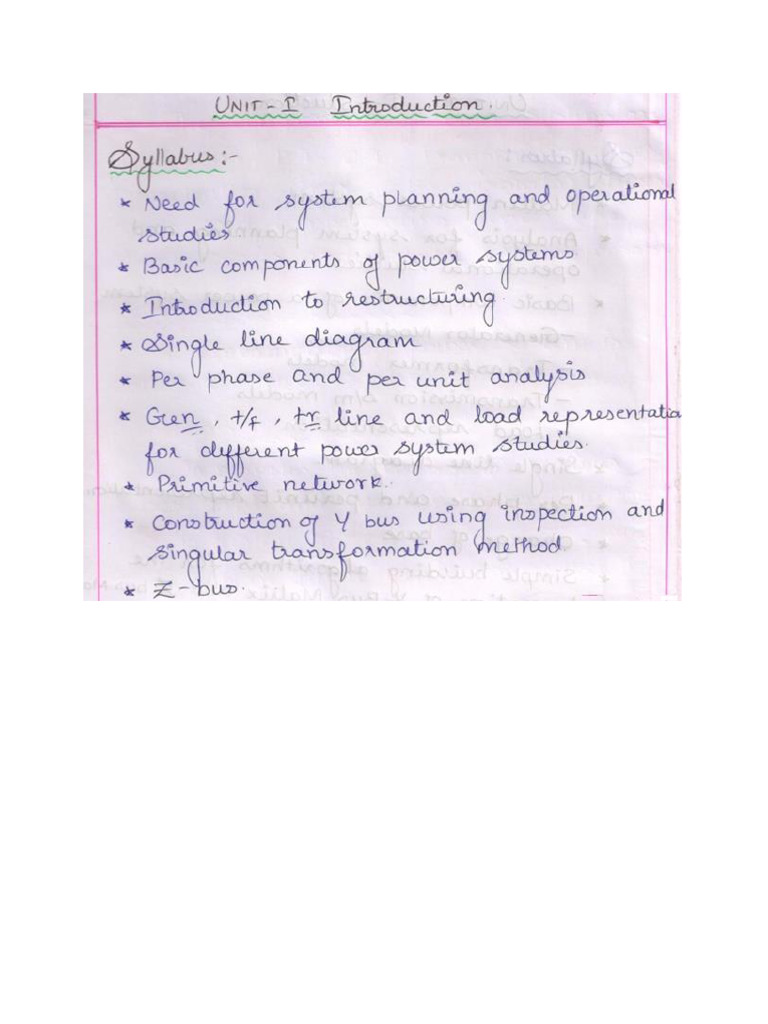 UNIT - I Introduction.
Syllabus:-
* Need for system planning and operational
studies.
* Basic components of power systems
* Introduction to restructuring.
* Single line diagram
* Per phase and per unit analysis
* Gen, t/f, tr line and load representatio
for different power system studies.
* Primitive network.
* Construction of Y bus using inspection and
singular transformation method
* Z-bus.